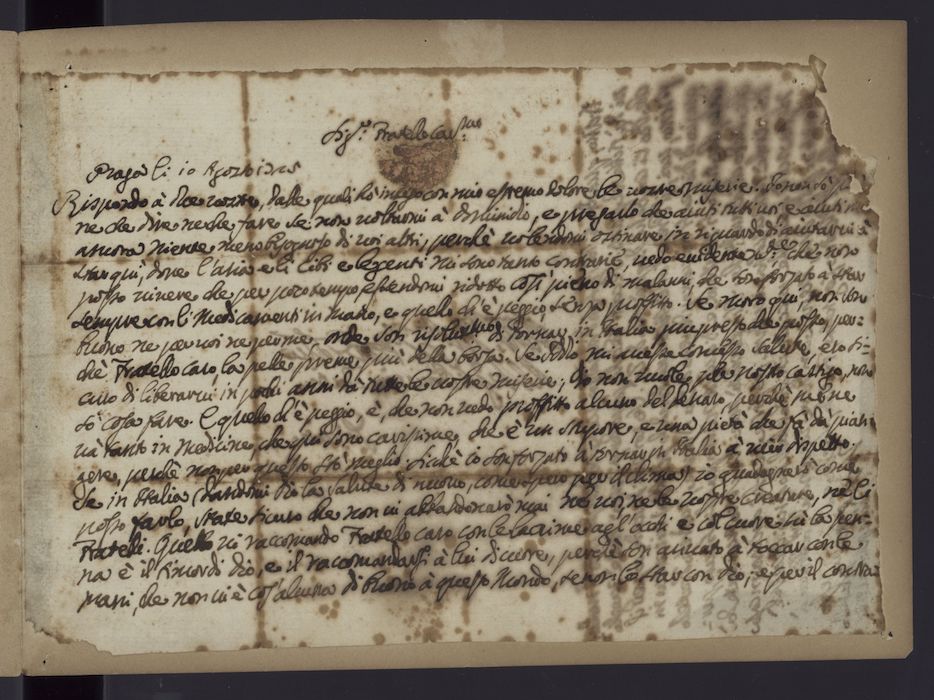 Sig.r Fratello Car.mo
Praga li 10 Agosto
Rispondo à due vostre, dalle quali hò inteso con mio estremo dolore le vostre miserie. Io non sò più
ne che dire ne che fare se non voltarmi à Dio, e pregarlo che aiuti tutti voi, e aiuti me
ancora niente meno bisognoso di voi altri, perchè volendomi ostinare in riguardo di aiutarvi à
star quì, dove l'aria e li cibi e le genti mi sono tanto contrarie, vedo evidentem.te che non
posso vivere che per poco tempo essendomi ridotto così pieno di malanni, che son forzato à star
sempre con li medicamenti in mano, e quello ch'è peggio, senza profitto. Se moro quì, non son
buono ne per voi ne per me, onde son risoluto di tornar in Italia più presto che posso, per-
chè Fratello caro, la pelle preme più della borsa. Se Iddio mi avesse concesso salute, ero si-
curo di liberarvi in pochi anni da tutte le vostre miserie; Dio non vuole, per nostro castigo, non
sò cosa fare. E quello ch'è peggio, è, che non vedo profitto alcuno del denaro, perchè me ne
và tanto in medicine, che quì sono carissime, che è un stupore, e una pietà che fà da pian-
gere, perchè non per questo stò meglio. Sichè io son forzato à tornar in Italia à mio dispetto.
Se in Italia (dandomi Dio la salute di nuovo, come spero per il clima) io guadagnerò come
posso farlo, state sicuro che non vi abbandonarò mai ne voi, ne le vostre creature, nè li
Fratelli. Quello vi raccomando Fratello caro con le lacrime agl'occhi e col cuore sù la pen-
na è il timor di Dio, e il raccomandarsi à lui di cuore, perchè son arrivato à toccar con le
mani, che non vi è cosa alcuna di buono à questo Mondo, se non lo star con Dio; e per il contra